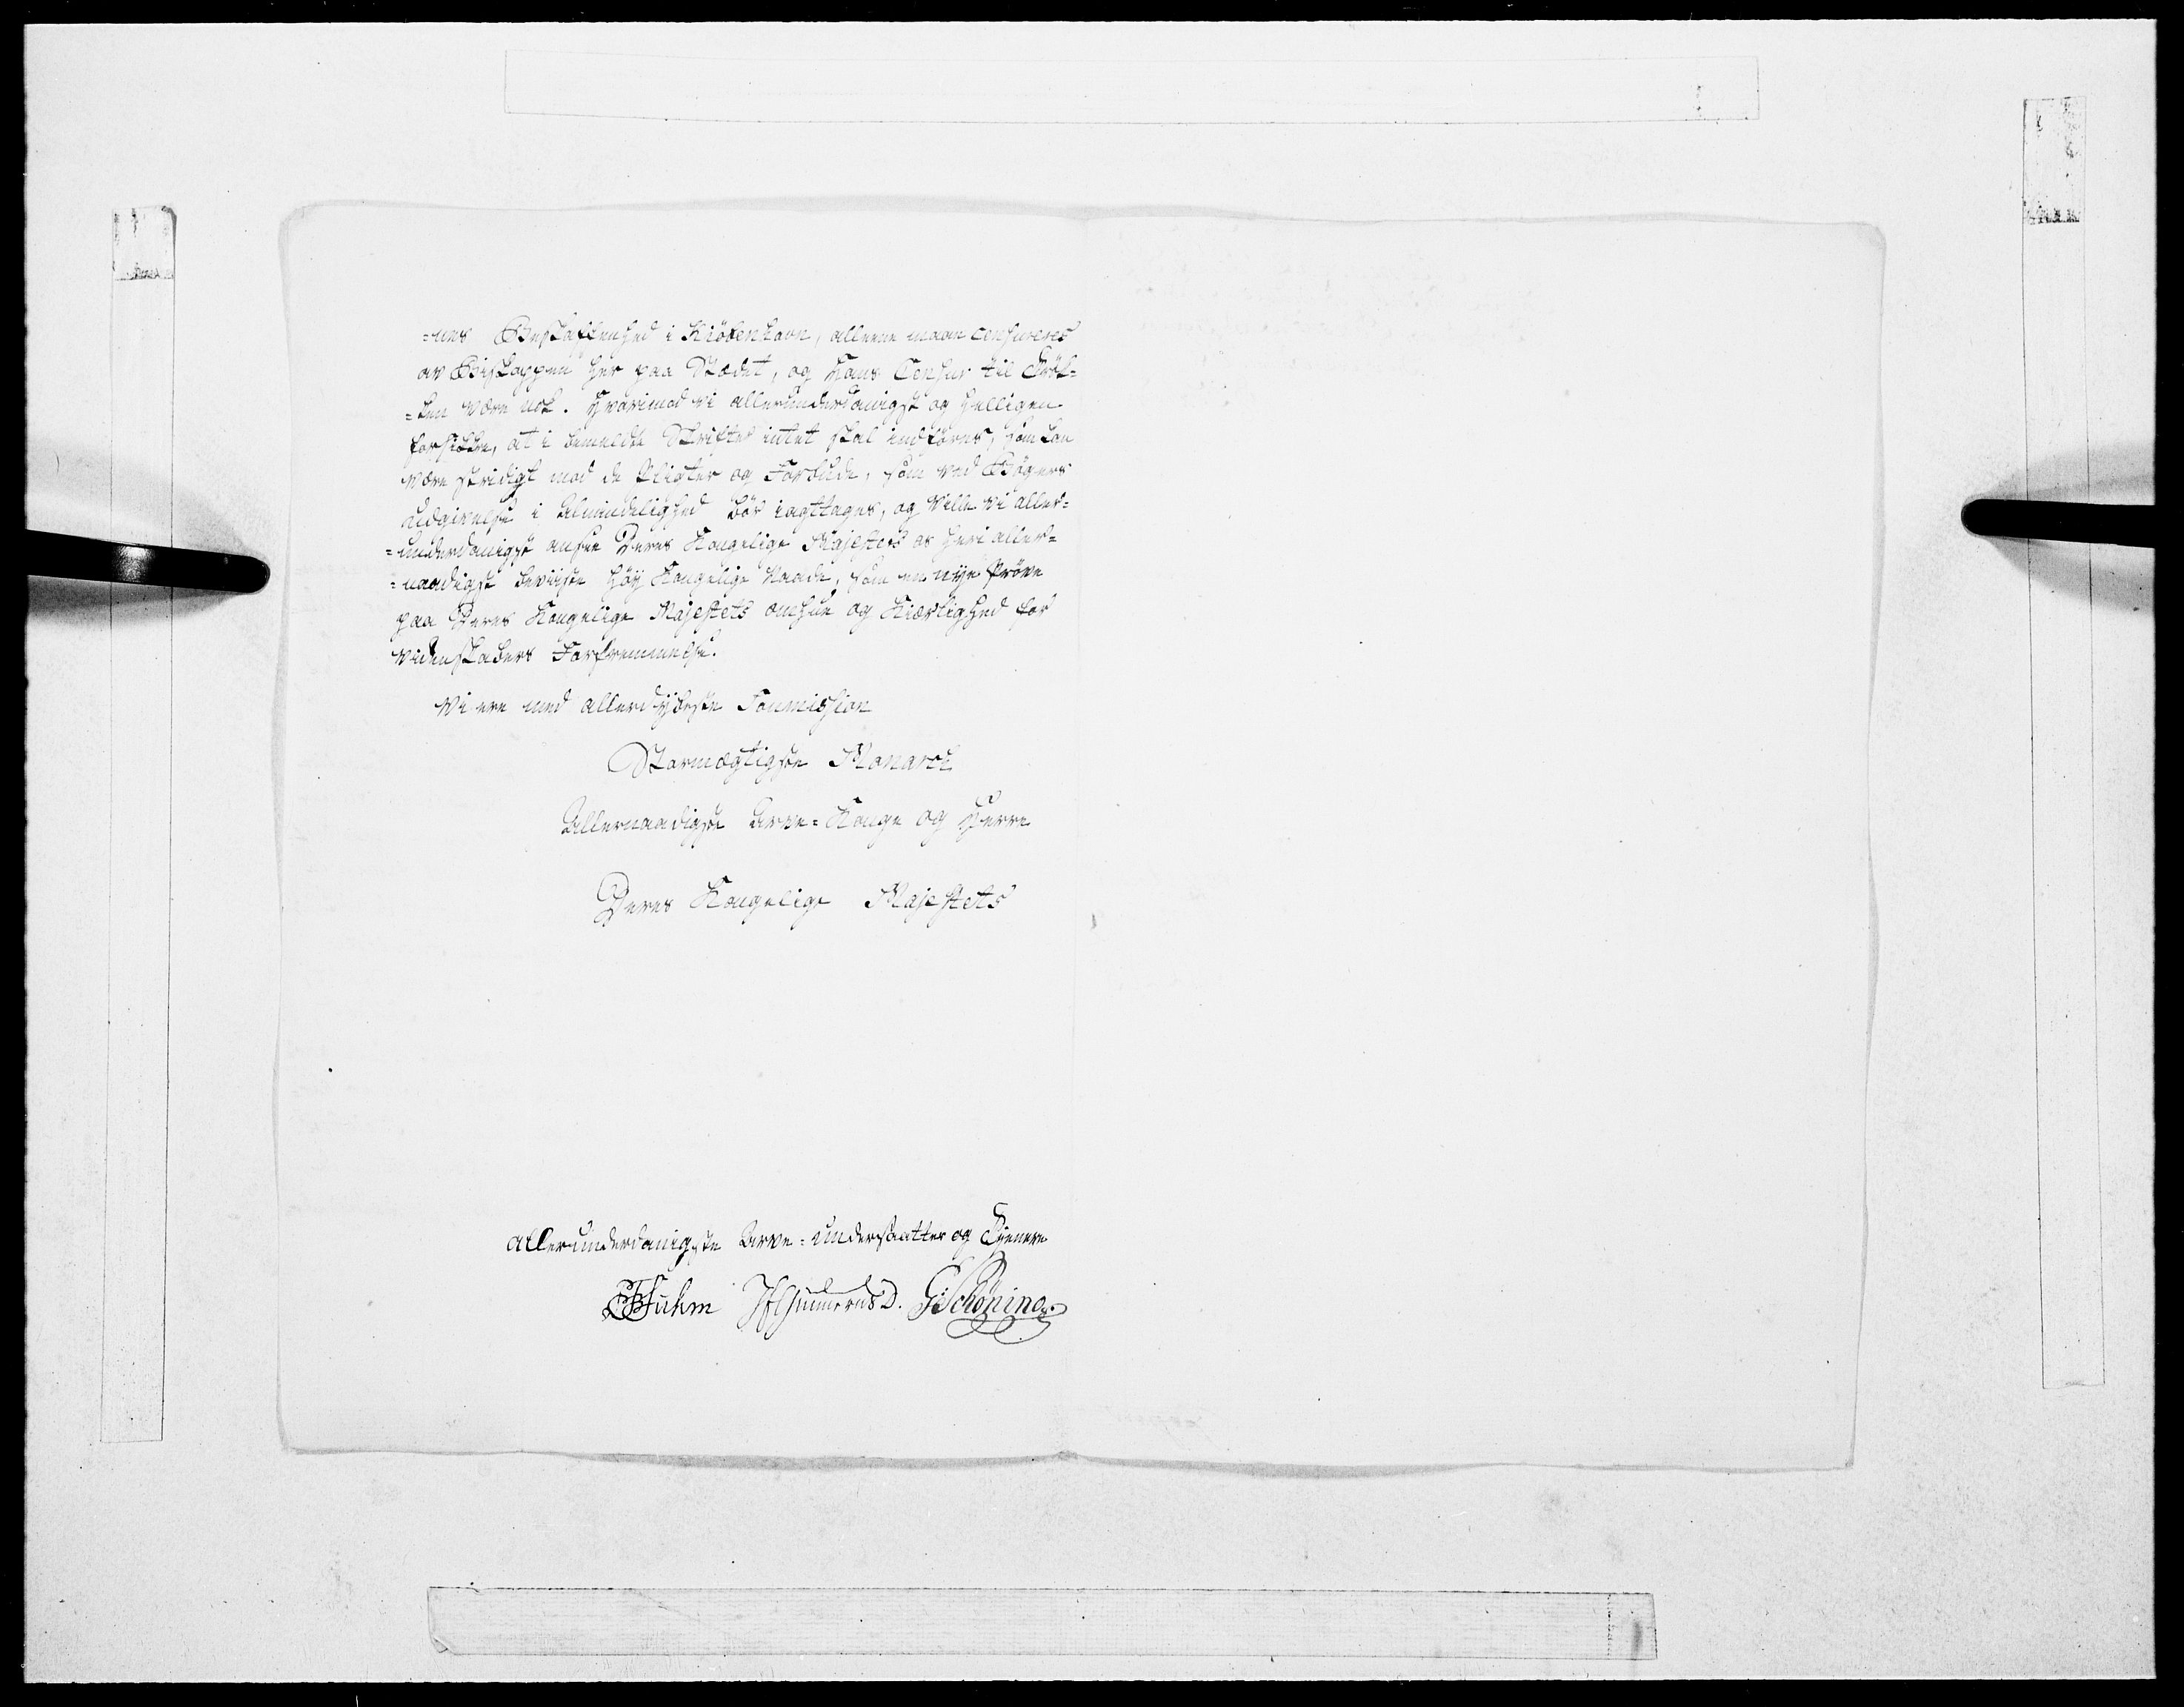 =nes Beskaffenhed i Kiöbenhavn, alleene maae censureres
av Biskoppen her paa Stædet, og hans Censur til Tryk=
=ken være nok. Hvorimod vi allerunderdanigst og helligen
forsikkre, at i bemeldte Skrifter intet skal indföres, som kan
være stridigt mod de Pligter og Forbude, som ved Bögers
Udgivelse i Almindelighed bör iagttages, og ville vi aller=
=underdanigst ansee Deres Kongelige Majestets os heri aller=
=naadigst beviiste höy Kongelige Naade, som en nye Pröve
paa Deres Kongelige Majestets omhue og Kierlighed for
Videnskabers Forfremmelse.
Vi ere med allerdybeste Soumission
Stormægtigste Monarch
Allernaadigste Arve=Konge og Herre
Deres Kongelige Majestets
allerunderdanigste Arve=undersaatter og Tjenere
PFSuhm JEGunnerus D. GSchöning.